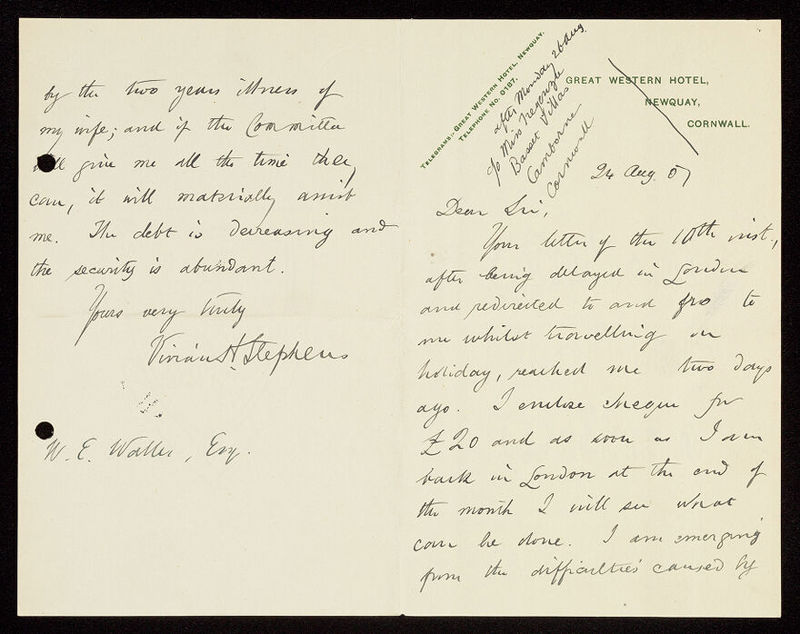 TELEGRAMS:- GREAT WESTERN HOTEL, NEWQUAY.
TELEPHONE No. 0187.
GREAT WESTERN HOTEL,
NEWQUAY,
CORNWALL.
after Monday 26 Aug.
c/o Miss
Basset Villas
Camborne
Cornwall
24 Aug. 07
Dear Sir,
Your letter of the 10th inst.,
after being delayed in London
and redirected to and fro to
me whilst travelling on
holiday, reached me two days
ago. I enclose cheque for
£20 and as soon as I am
back in London at the end of
the month I will see what
can be done. I am emerging
from the difficulties caused by
by the two years illness of
my wife; and if the Committee
will give me all the time they
can, it will materially assist
me. The debt is decreasing and
the security is abundant.
Yours very truly
Vivian H. Stephens
W. E. Waller, Esq.